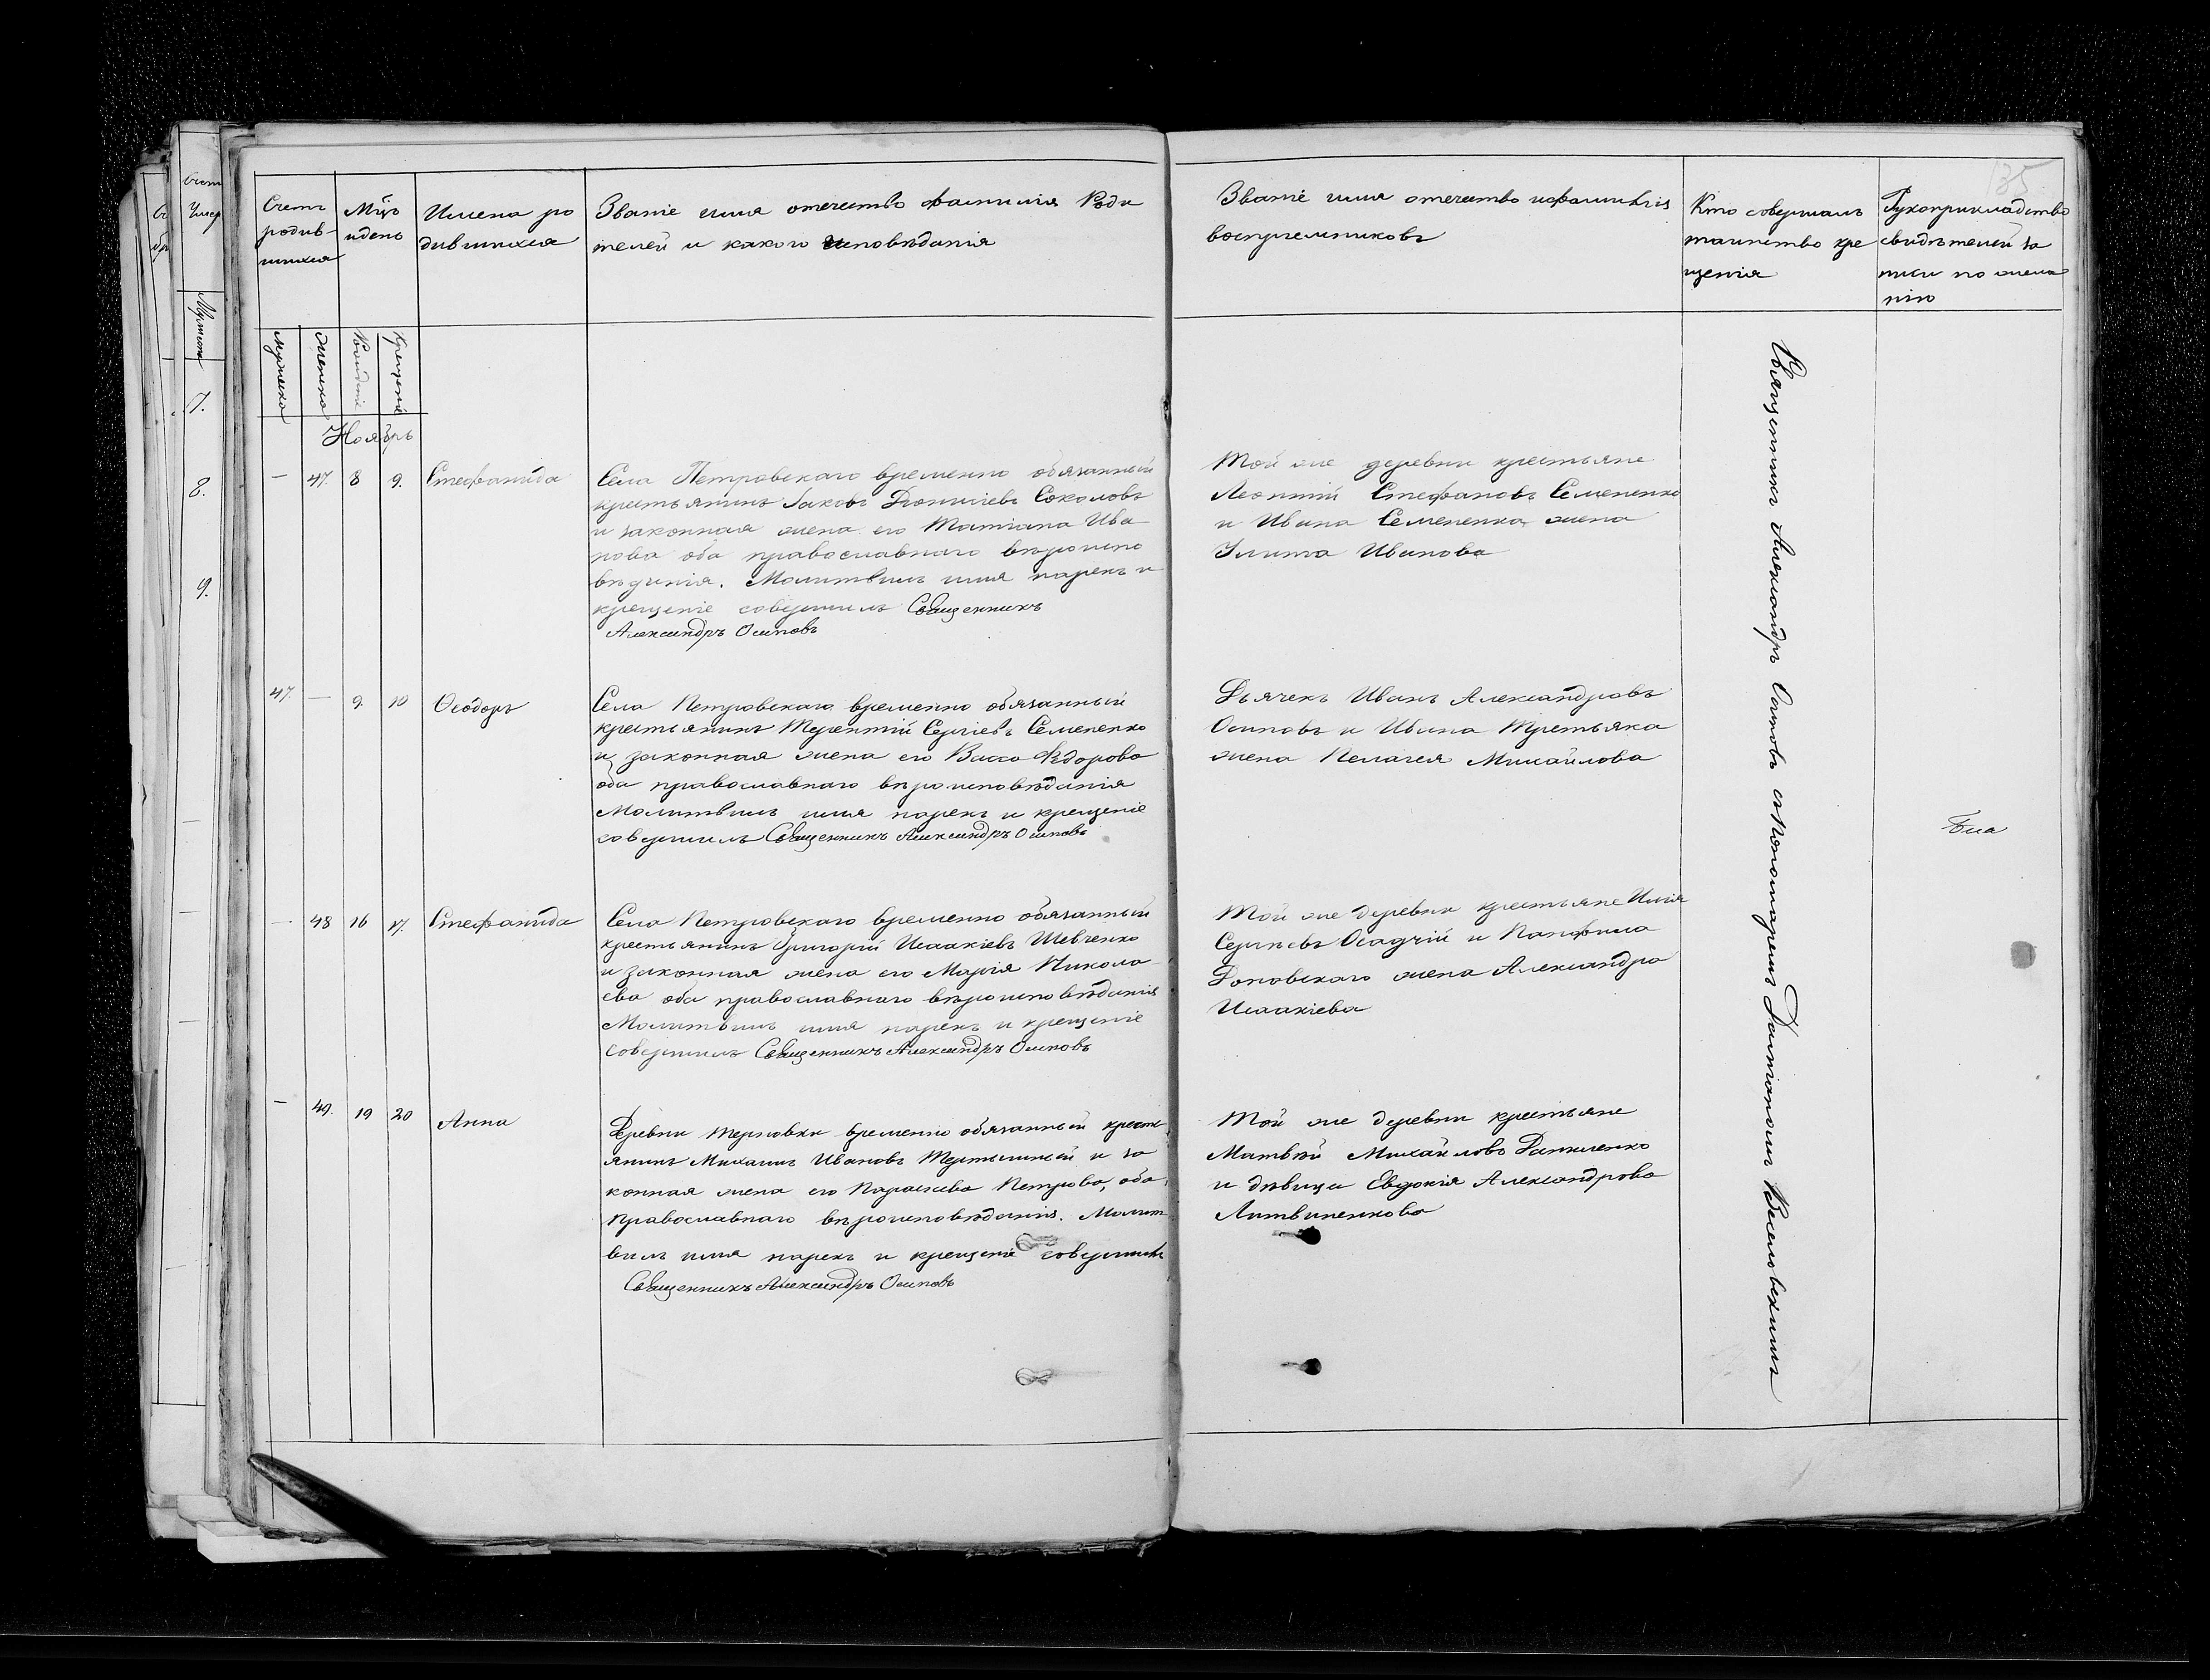 135
Счетъ родив-шихся
Мцъ и день
Имена ро
дившихся
Званіе имя отечество фамилія Роди
телей и какого исповѣданія
Званіе имя отечество и фамилія
воспріемниковъ
Кто совершалъ
таинство кре
щенія
Рукоприкладство
свидѣтелей за
писи по жела
нію
Мужеска
Женска
Рожденіе
Крещеніе
Ноябрь
— 47. 8 9. Стефанида
Села Петровскаго временно обязанный
крестьянинъ Іаковъ Діонисіевъ Соколовъ
и законная жена его Татіана Ива
нова оба православнаго вѣроиспо
вѣданія. Молитвилъ имя нарекъ и
крещеніе совершилъ Священникъ
Александръ Осиповъ
Той же деревни крестьяне
Леонтій Стефановъ Семененко
и Ивана Семененка жена
Улита Иванова
47. — 9. 10 Ѳеодоръ
Села Петровскаго временно обязанный
крестьянинъ Терентій Сергіевъ Семененко
и законная жена его Васса Ѳедорова
оба православнаго вѣроисповѣданія
Молитвилъ имя нарекъ и крещеніе
совершилъ Священникъ Александръ Осиповъ
Дьячекъ Иванъ Александровъ
Осиповъ и Ивана Третьяка
жена Пелагея Михайлова
— 48 16 17. Стефанида
Села Петровскаго временно обязанный
крестьянинъ Григорій Исаакіевъ Шевченко
и законная жена его Марія Никола
ева оба православнаго вѣроисповѣданія
Молитвилъ имя нарекъ и крещеніе
совершилъ Священникъ Александръ Осиповъ
Той же деревни крестьяне Илія
Сергіевъ Осадчій и Панфила
жена Александра
Исаакіева
— 49. 19 20 Анна
Деревни Терновки временно обязанный кресть
янинъ Михаилъ Ивановъ и за
конная жена его Параскева Петрова, оба
Православнаго вѣроисповѣданія. Молит
вилъ имя нарекъ и крещеніе совершилъ
Священникъ Александръ Осиповъ
Той же деревни крестьяне
Матвѣй Михайловъ Даниленко
и дѣвица Евдокія Александрова
Литвиненкова
Священникъ Александръ Осиповъ съ Пономаремъ Веселовскимъ
7.
8.
9.